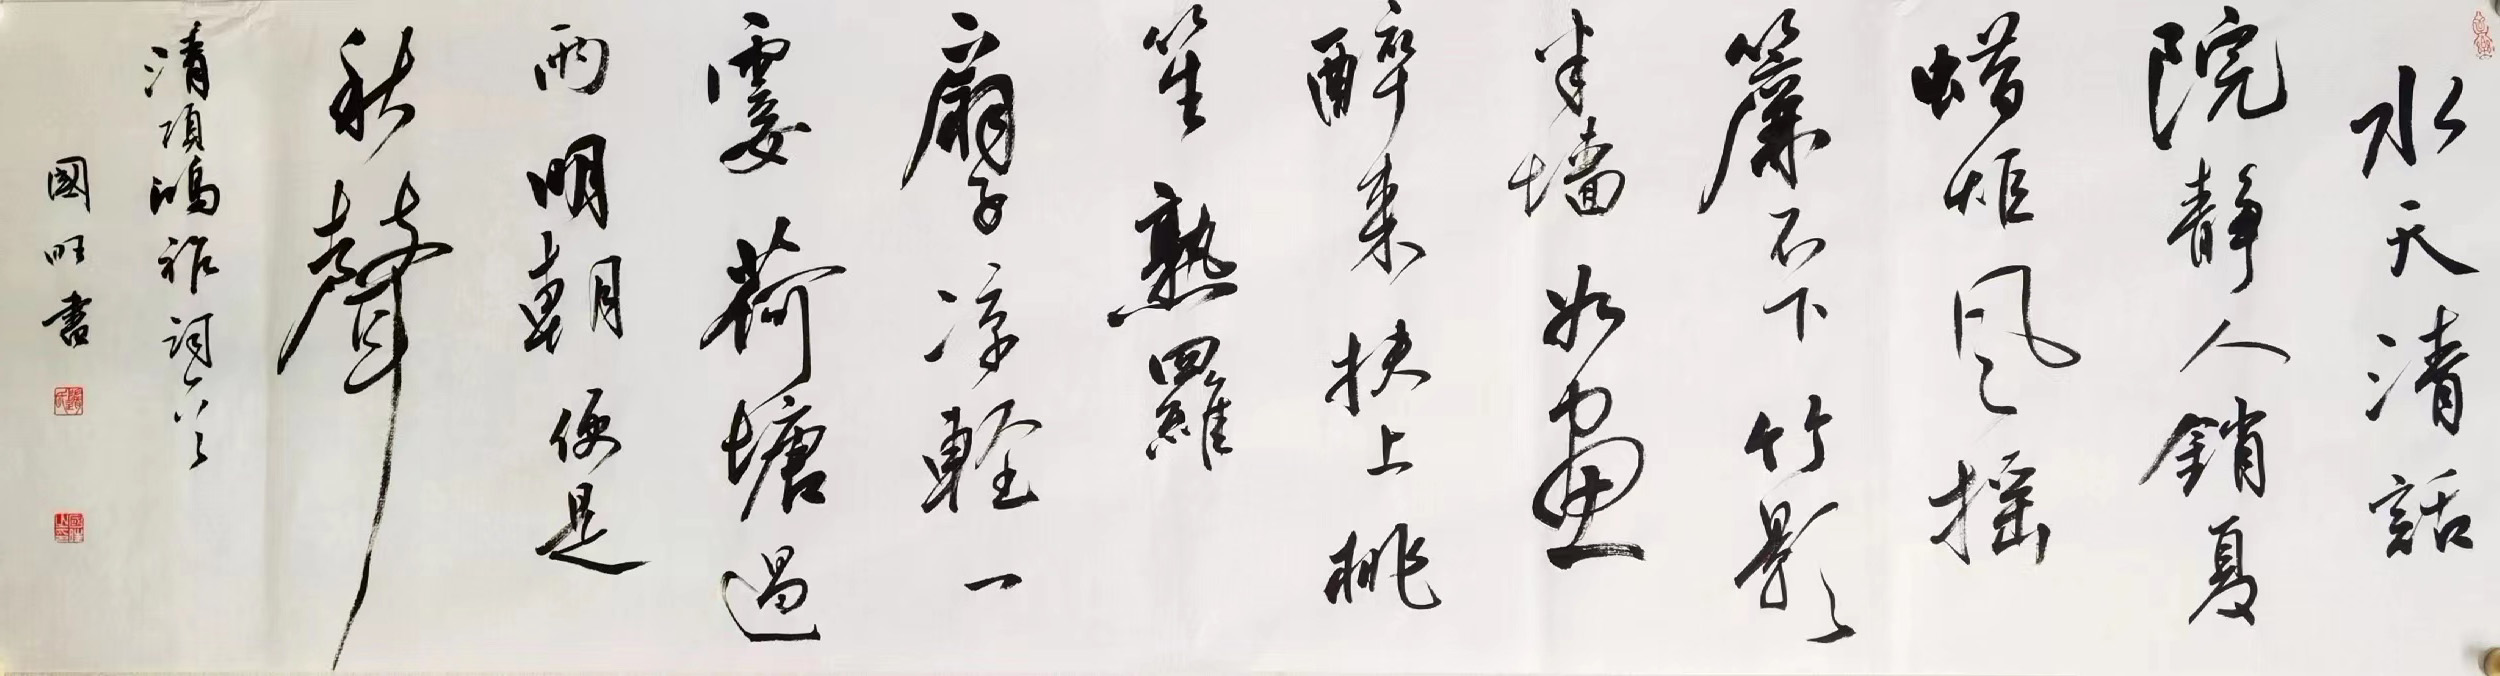 水天清話
院静人銷夏
蜡炬风摇
簾不下竹影
半墙如畫
醉来扶上桃
笙熟羅
扇子凉輕一
霎荷塘過
雨明朝便是
秋聲
清項鴻祚詞一首
國旺書